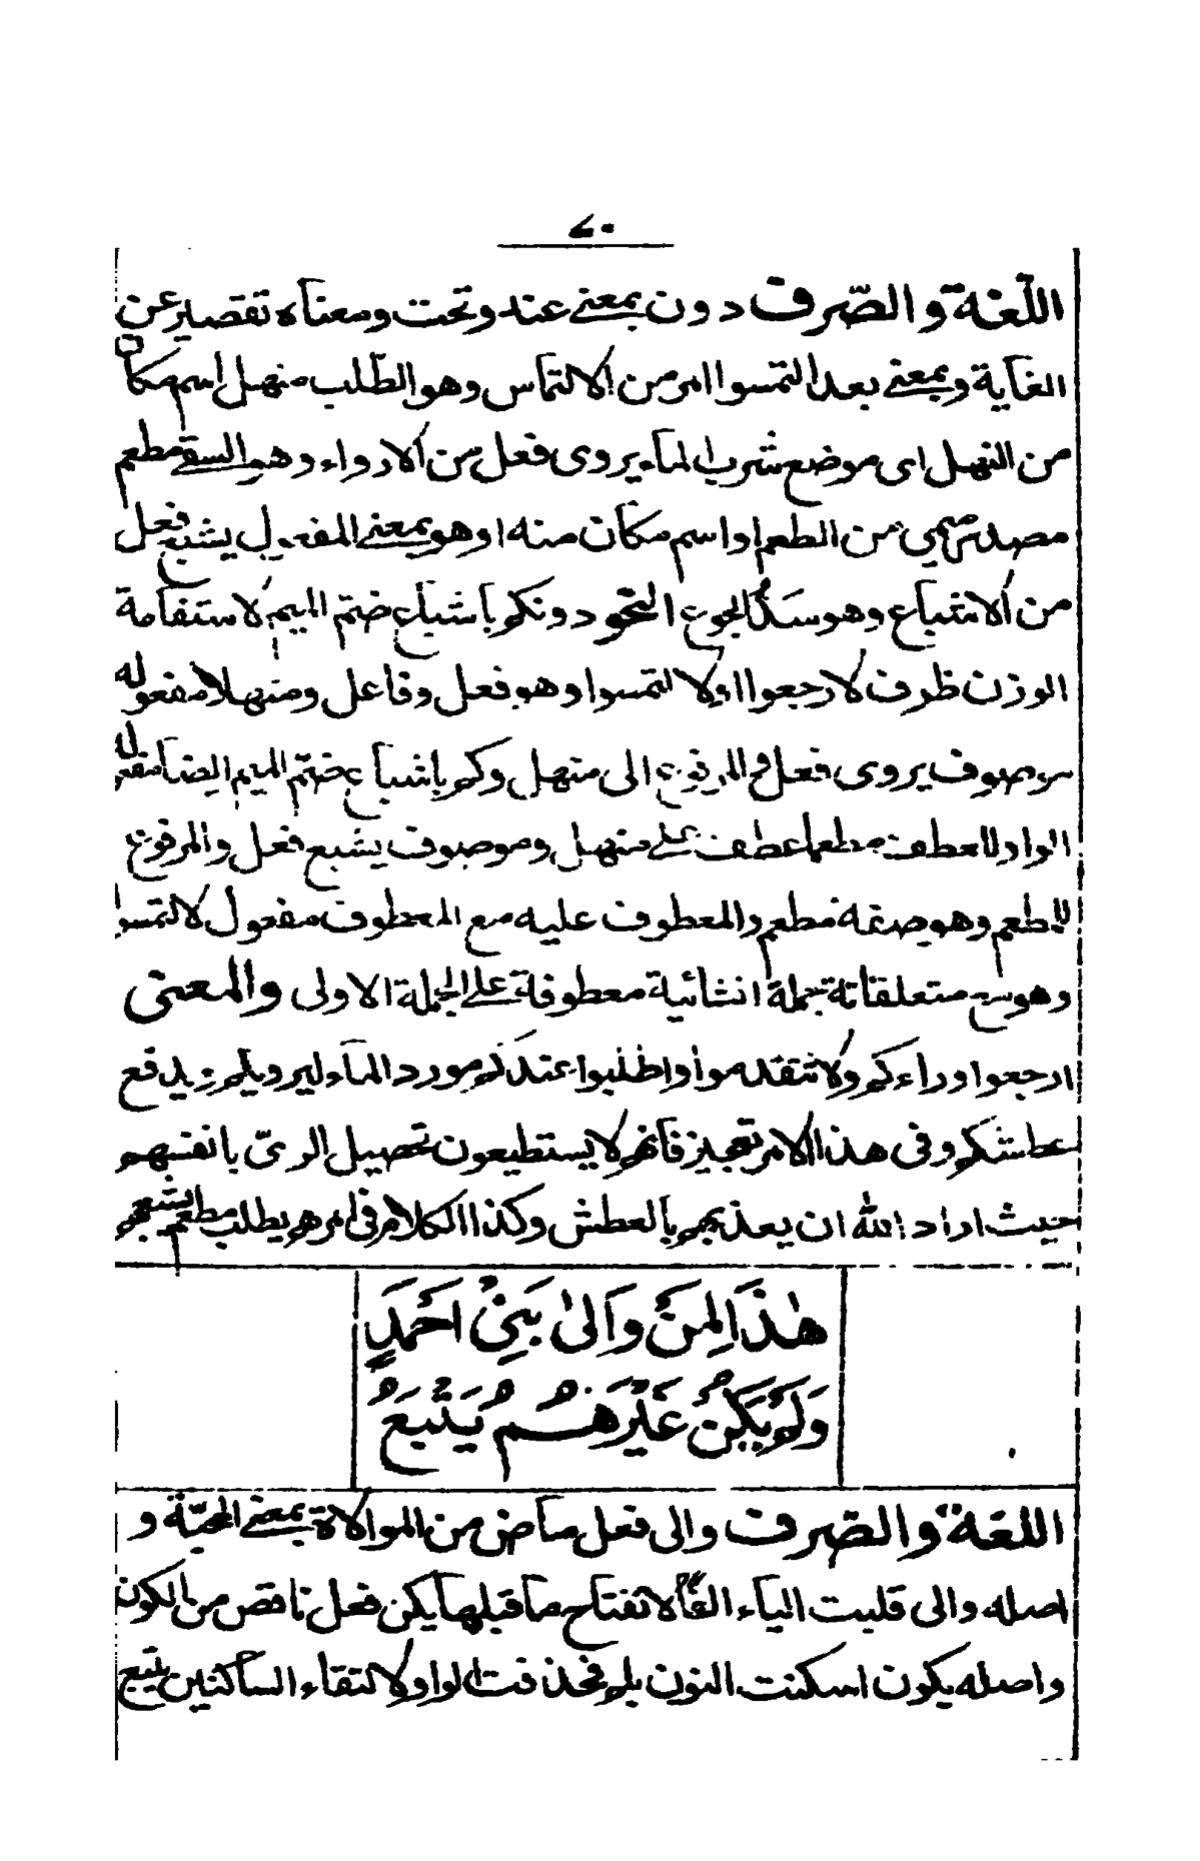 ٧٠
اللّغة والصّرف دون بمعنى عند وتحت ومعناه تقصير عن
الغاية وبمعنى بعد التمسوا امر من الالتماس وهو الطّلب منهل اسم مكان
من النهل اى موضع شرب الماء يروى فعل من الارواء وهو السقى مطعم
مصدر ميمي من الطعم او اسم مكان منه او هو بمعنى المفعول يشبع فعل
من الاشباع وهو سدّ الجوع النحو دونكم باشباع ضمّ الميم لاستقامة
الوزن ظرف لارجعوا او لالتمسوا وهو فعل وفاعل ومنهلا مفعوله
موصوف يروى فعل والمرفوع الى منهل وكم باشباع ضمّ الميم ايضا مفعوله
الواو للعطف مطعما عطف على منهل وموصوف يشبع فعل والمرفوع
للمطعم وهو صفة مطعم والمعطوف عليه مع المعطوف مفعول لالتمسوا
وهو مع متعلقاته جملة انشائية معطوفة على الجملة الاولى والمعنى
ارجعوا وراءكم ولا تتقدموا واطلبوا عندكم مورد الماء ليرويكم ويدفع
عطشكم وفى هذا الامر تعجيز فانهم لا يستطيعون تحصيل الرىّ بانفسهم
حيث اراد الله ان يعذبهم بالعطش وكذا الكلام فى امرهم بطلب مطعم يشبعهم
هٰذَا لِمَنْ وَالىٰ بَنِىْ اَحْمَدٍ
وَلَمْ يَكُنْ غَيْرَهُمْ يَتْبَعُ
اللغة والصّرف والى فعل ماض من الموالاة بمعنى المحبّة و
اصله والى قلبت الياء الفًا لانفتاح ما قبلها يكن فعل ناقص من الكون
واصله يكون اسكنت النون بلم فحذفت الواو لالتقاء الساكنين يتبع